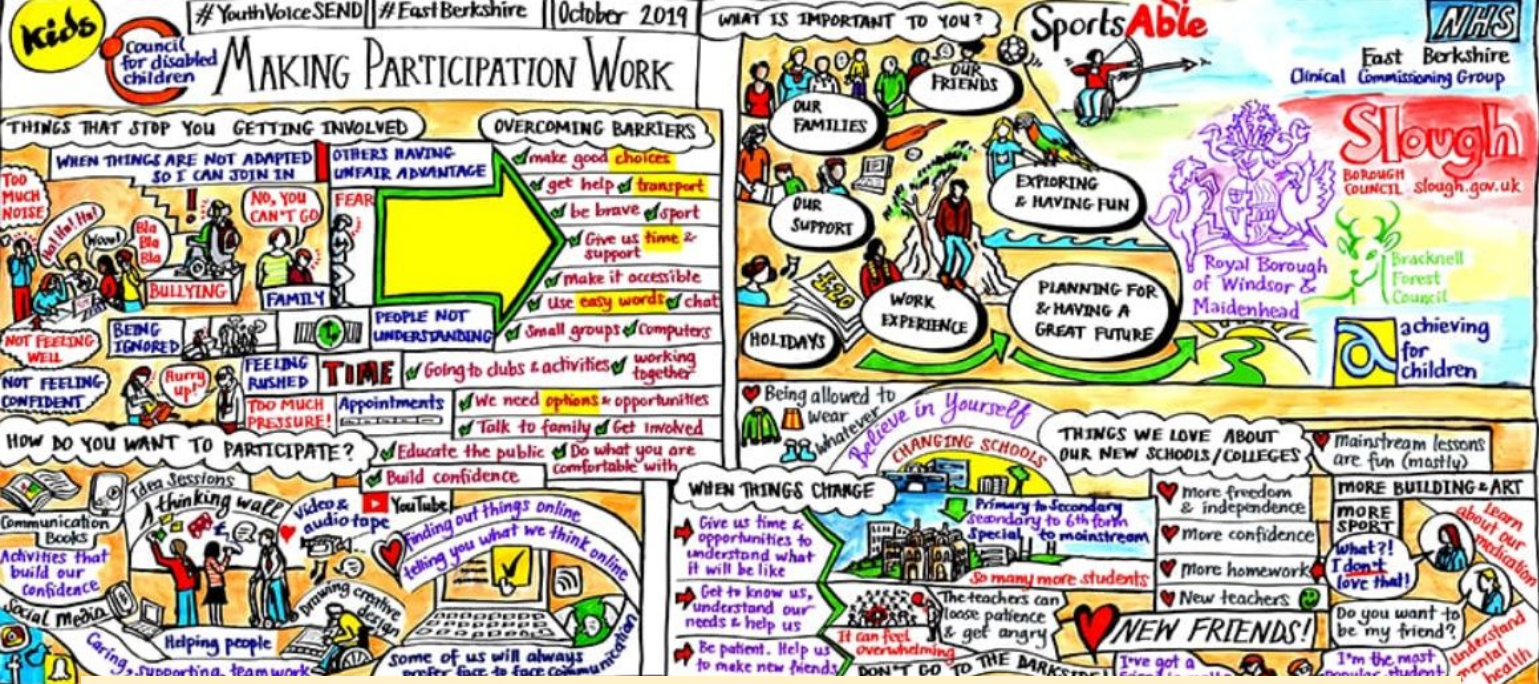 Kids
Council
for disabled
children
#YouthVoiceSEND
#EastBerkshire
October 2019
MAKING PARTICIPATION WORK
THINGS THAT STOP YOU GETTING INVOLVED
WHEN THINGS ARE NOT ADAPTED
SO I CAN JOIN IN
OTHERS HAVING
UNFAIR ADVANTAGE
TOO
MUCH
NOISE
Ha! Ha! Ha!
Wow!
Bla
Bla
Bla
!!
BULLYING
NO, YOU
CAN'T GO
FEAR
FAMILY
NOT FEELING
WELL
BEING
IGNORED
PEOPLE NOT
UNDERSTANDING
NOT FEELING
CONFIDENT
Hurry
up!
FEELING
RUSHED
TIME
TOO MUCH
PRESSURE!
Appointments
OVERCOMING BARRIERS
make good choices
get help transport
be brave sport
Give us time &
support
make it accessible
use easy words chat
Small groups Computers
Going to clubs & activities working
together
We need options & opportunities
Talk to family Get involved
Educate the public Do what you are
comfortable with
Build confidence
HOW DO YOU WANT TO PARTICIPATE?
Communication
Books
Idea Sessions
thinking wall
Video &
audio tape
YouTube
Activities that
build our
confidence
Social Media
Helping people
Caring, supporting, teamwork
Drawing creative
design
Finding out things online
telling you what we think online
Some of us will always
prefer face to face communication
WHAT IS IMPORTANT TO YOU?
OUR
FRIENDS
OUR
FAMILIES
OUR
SUPPORT
EXPLORING
& HAVING FUN
£20
HOLIDAYS
WORK
EXPERIENCE
PLANNING FOR
& HAVING A
GREAT FUTURE
SportsAble
NHS
East Berkshire
Clinical Commissioning Group
Slough
BOROUGH
COUNCIL slough.gov.uk
Royal Borough
of Windsor &
Maidenhead
Bracknell
Forest
Council
achieving
for
children
Being allowed to
wear
whatever
Believe in Yourself
CHANGING SCHOOLS
WHEN THINGS CHANGE
Give us time &
opportunities to
understand what
it will be like
Get to know us,
understand our
needs & help us
Be patient. Help us
to make new friends
Primary to Secondary
secondary to 6th form
Special to mainstream
So many more students
It can feel
overwhelming
The teachers can
loose patience
& get angry
DON'T GO TO THE DARKSIDE!
THINGS WE LOVE ABOUT
OUR NEW SCHOOLS/COLLEGES
mainstream lessons
are fun (mostly)
more freedom
& independence
more confidence
more homework
New teachers
NEW FRIENDS!
MORE BUILDING & ART
MORE
SPORT
What?!
I don't
love that!
Learn
about our
medication
Do you want to
be my friend?
understand
mental
health
I've got a
I'm the most
popular student